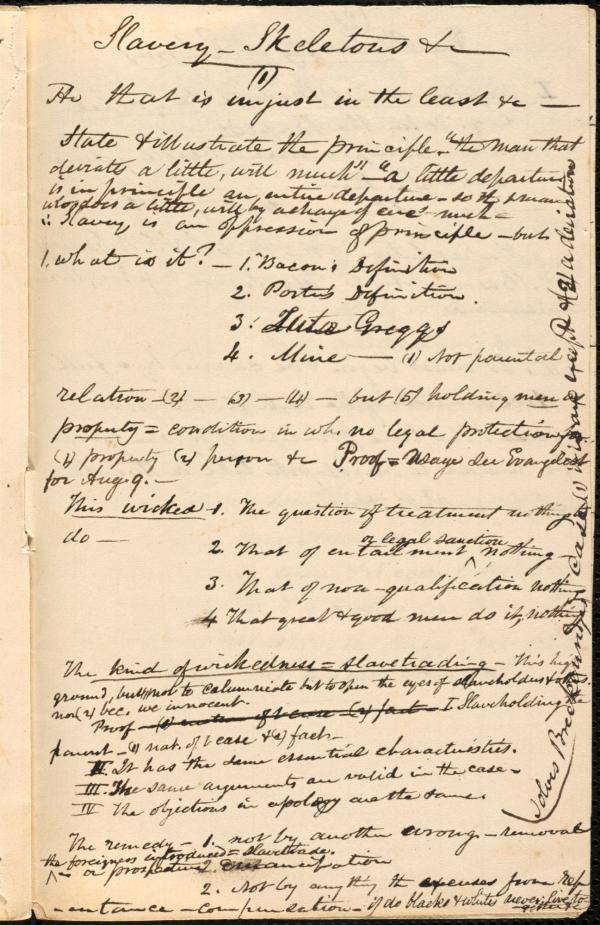 Slavery – Skeletons &c
(1)
He that is unjust in the least &c —
State & illustrate the principle. "the man that
deviates a little, will much" – "a little departure
is in principle an entire departure – so the man
who does a little, will by a change of circs much –
∴ Slavery is an oppression of principle – but
1. what is it? – 1. Bacon's Definition
2. Porter's Definition.
3. Greggs
4. Mine — (1) Not parental
relation – (2) – (3) – (4) – but (5) holding men as
property = condition in wh. no legal protection for
(1) property (2) person &c Proof = Usage See Evangelist
for Aug. 9. –
This wicked – 1. The question of treatment nothing to
do —
or legal sanction
2. That of entailment ^ nothing
3. That of non-qualification nothing
4 That great & good men do it, nothing
The kind of wickedness = slavetrading – This high
ground, but (1) not to calumniate but to open the eyes of slaveholders &
nor (2) bec. we innocent.
Proof – (1) nature of t case – (2) fact – I Slaveholding the
parent – (1) nat. of t case & (2) fact –
II. It has the same essential characteristics.
III. The same arguments are valid in the case –
IV The objections in apology are the same.
The remedy – 1. not by another wrong – removal
the foreigners introduced = slavetrade.
^ – or prospective emancipation
2. Not by anything th excuses from rep
-entance – compensation – if do blacks & whites never live to-
gether &c